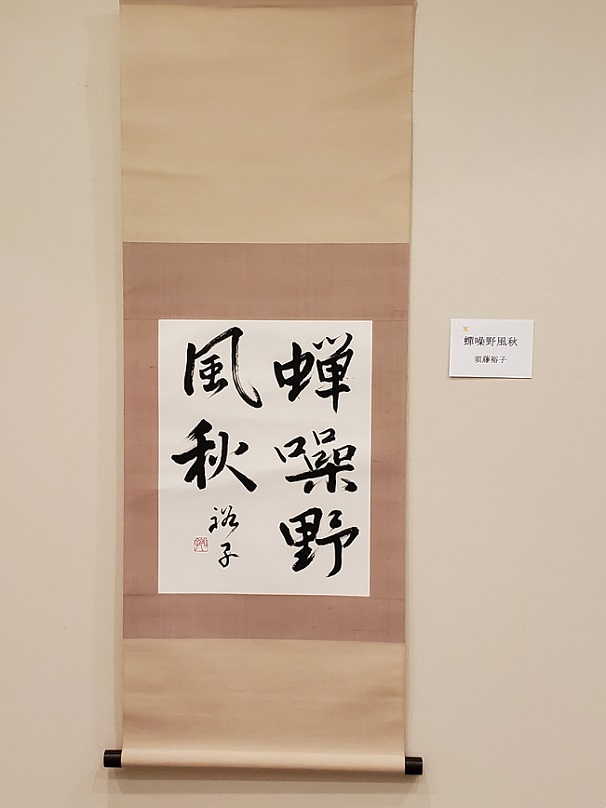 蝉噪野
風秋
裕子
蟬噪野風秋
須藤裕子